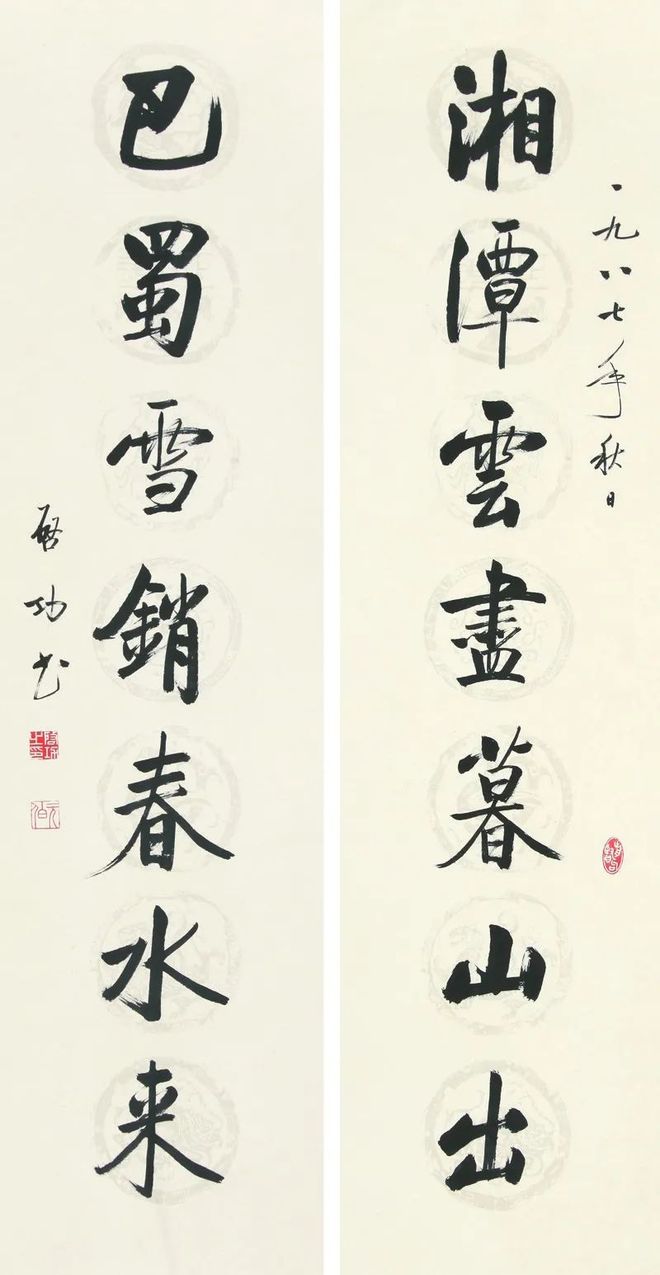 一九八七年秋日
湘潭雲盡暮山出
巴蜀雪銷春水来
启功书
元伯